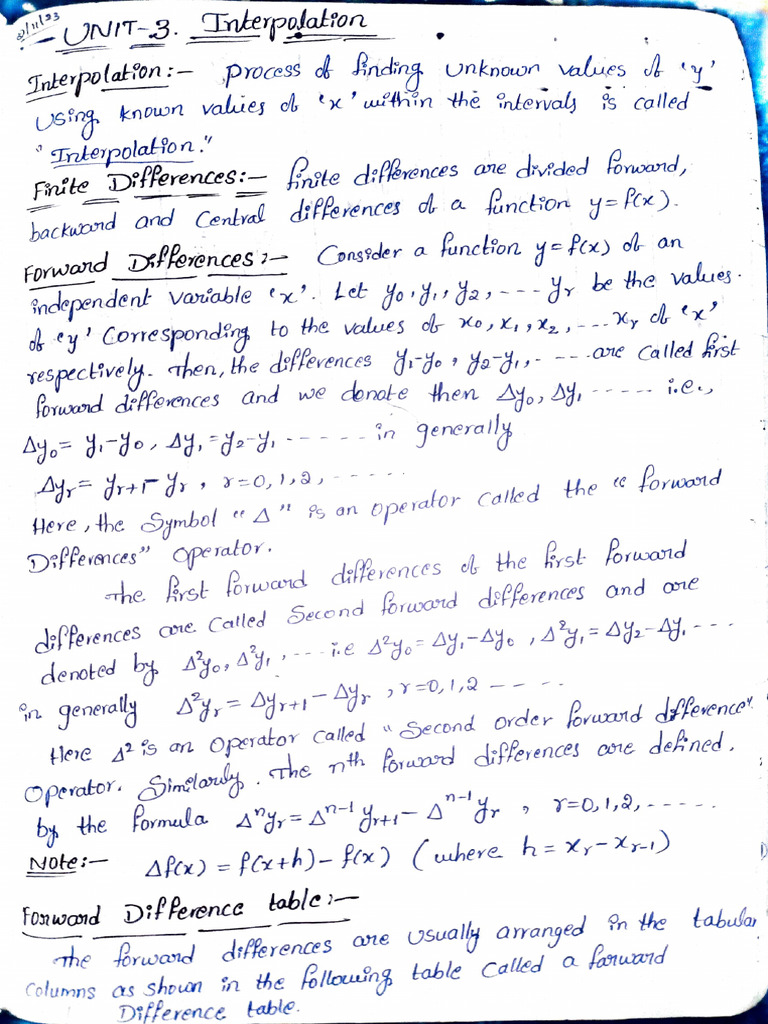 2/11/23
UNIT-3. Interpolation
Interpolation:- process of finding unknown values of 'y'
using known values of 'x' within the intervals is called
"Interpolation."
Finite Differences:- finite differences are divided forward,
backward and central differences of a function y=f(x).
Forward Differences:- Consider a function y=f(x) of an
independent variable 'x'. Let y₀, y₁, y₂, ---- yᵣ be the values.
of 'y' corresponding to the values of x₀, x₁, x₂, --- xᵣ of 'x'
respectively. Then, the differences y₁-y₀, y₂-y₁, - --- are called first
forward differences and we donate then Δy₀, Δy₁ ----- i.e.,
Δy₀ = y₁-y₀, Δy₁ = y₂-y₁ ------ in generally
Δyᵣ = yᵣ₊₁- yᵣ, r=0,1,2, ------
Here, the symbol "Δ" is an operator called the "forward
Differences" operator.
The first forward differences of the first forward
differences are called second forward differences and are
denoted by Δ²y₀, Δ²y₁, ---- i.e Δ²y₀ = Δy₁-Δy₀, Δ²y₁ = Δy₂-Δy₁ ---
in generally Δ²yᵣ = Δyᵣ₊₁ - Δyᵣ, r=0,1,2 -----
Here Δ² is an operator called "second order forward difference"
operator. Similarly. The nth forward differences are defined.
by the formula Δⁿyᵣ = Δⁿ⁻¹ yᵣ₊₁ - Δⁿ⁻¹ yᵣ, r=0,1,2, -----
Note:- Δf(x) = f(x+h) - f(x) (where h = xᵣ - xᵣ₋₁)
Forward Difference table:-
The forward differences are usually arranged in the tabular
columns as shown in the following table called a forward
Difference table.